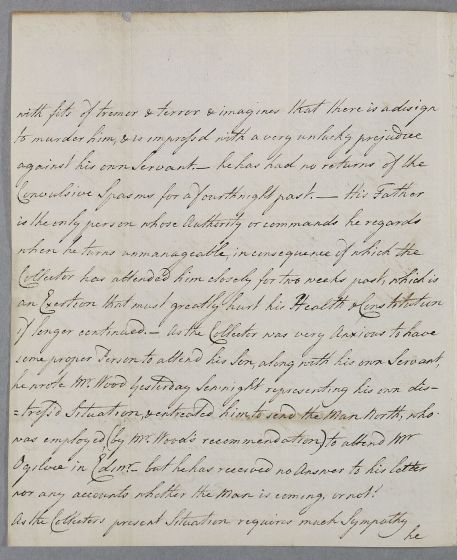 with fits of tremor & terror & imagines that there is a design
to murder him, & is impress'd with a very unlucky prejudice
against his own Servant. — he has had no returns of the
Convulsive Spasms for a fourthnight past. — His Father
is the only person whose Authority or commands he regards
when he turns unmanageable, in consequence of which the
Collector has attended him closely for two weeks past, which is
an Exertion that must greatly hurt his Health & Constitution
if longer continued. — As the Collector was very Anxious to have
some proper Person to attend his Son, along with his own Servant,
he wrote Mr. Wood Yesterday Sennight representing his own dis-
-tress'd Situation, & entreated him to send the Man North, who
was employed (by Mr. Wood's recommendation) to attend Mr
Ogilvee in Edinr. — but he has received no Answer to his letter
nor any accounts whether the Man is coming, or not!
As the Collectors present Situation requires much Sympathy
he